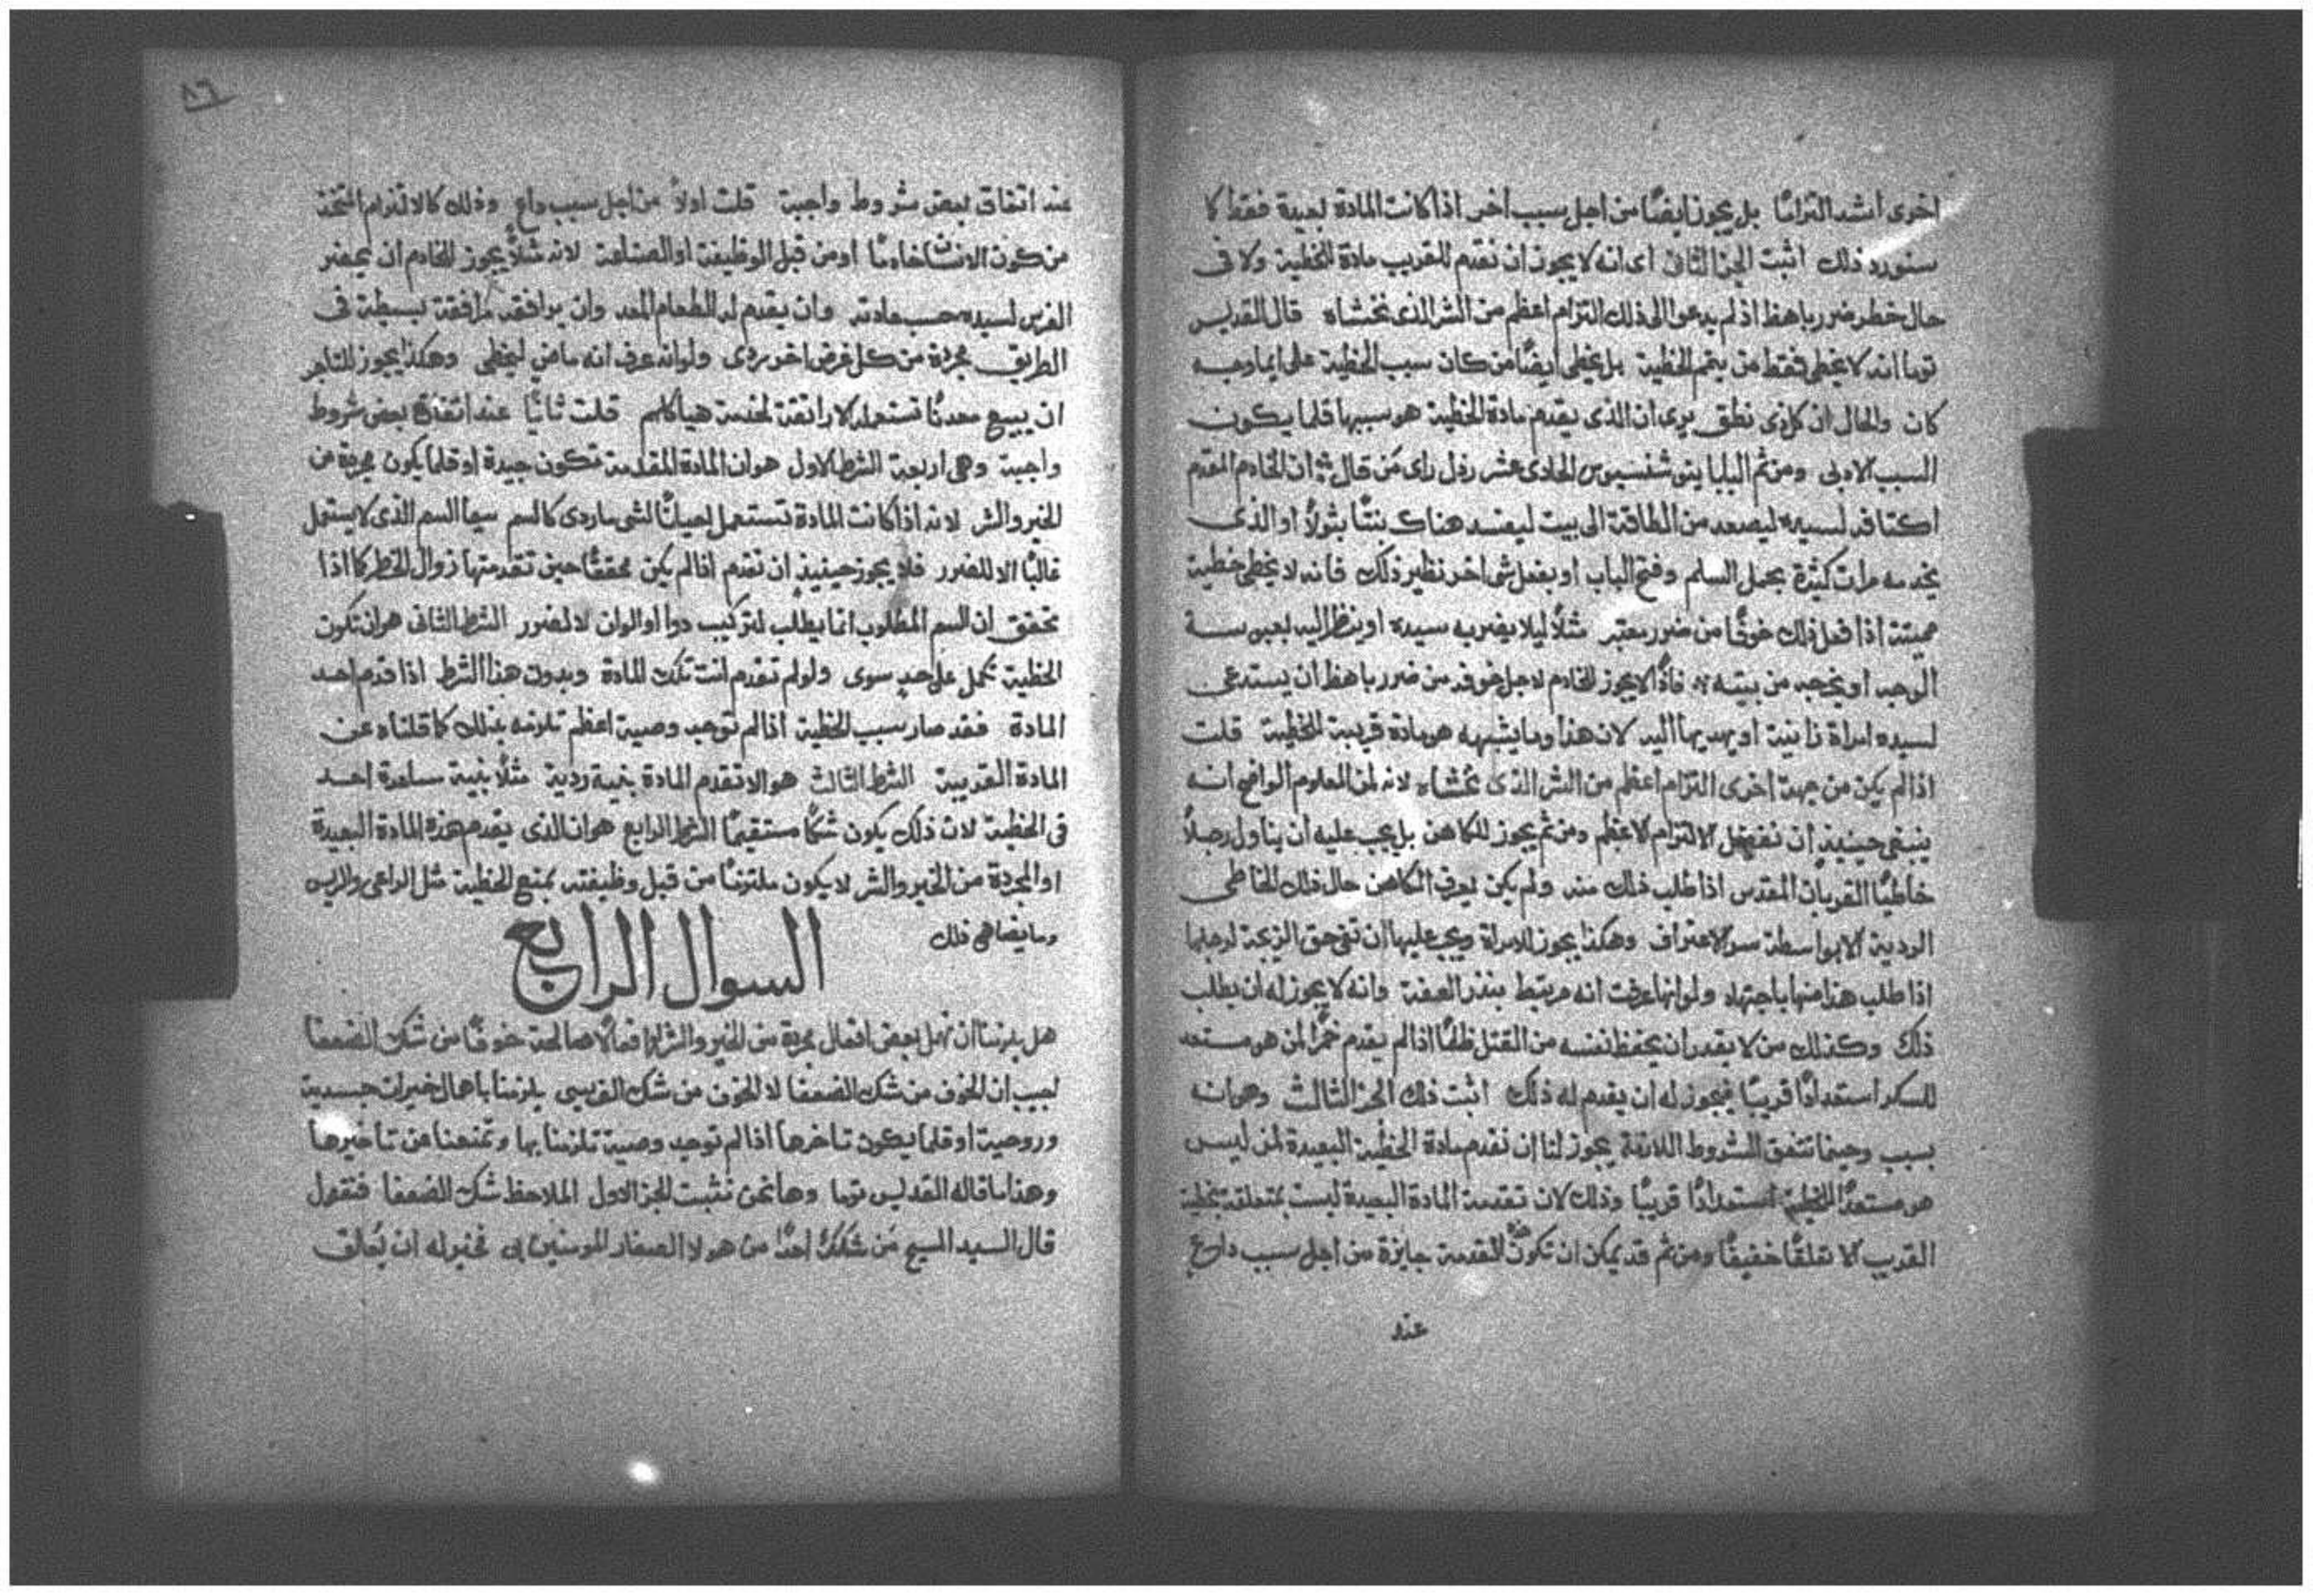 اخرى اشد التزامًا بل يجوز ايضًا من اجل سبب اخر اذا كانت المادة بعيدة فقط كما
سنورد ذلك اثبت الجز الثاني اى انه لا يجوز ان نقدم للقريب مادة للخطية ولا فى
حال خطر ضرر باهظ اذ لم يدعو الى ذلك التزام اعظم من الشر الذى نخشاه قال القديس
توما انه لا يخطى فقط من يتمم الخطية بل يخطى ايضًا من كان سبب الخطية على ايما وجه
كان والحال ان كل ذى نطق يرى ان الذى يقدم مادة الخطية هو سببها قلما يكون
السبب الادبى ومن ثم البابا اينوشنسيوس الحادى عشر رذل راى من قال ان الخادم المقدم
اكتافه لسيده ليصعد من الطاقة الى بيت ليفسد هناك بنتًا بتولاً او الذى
يخدمه مرات كثيرة بحمل السلم وفتح الباب او بفعل شى اخر نظير ذلك فانه لا يخطى خطية
مميتة اذا فعل ذلك خوفًا من ضرر معتبر مثلاً ليلا يضربه سيده او ينظر اليه بعبوسة
الوجه او يخرجه من بيته فاذًا لا يجوز للخادم لاجل خوفه من ضرر باهظ ان يستدعى
لسيده امراة زانية او يهديها اليه لان هذا وما يشبهه هو مادة قريبة للخطية قلت
اذا لم يكن من جهة اخرى التزام اعظم من الشر الذى نخشاه لانه لمن المعلوم الواضح انه
ينبغى حينيذٍ ان نفضل الالتزام الاعظم ومن ثم يجوز للكاهن بل يجب عليه ان يناول رجلاً
خاطيًا القربان المقدس اذا طلب ذلك منه ولم يكن يعرف الكاهن حال ذلك الخاطى
الردية الا بواسطة سر الاعتراف وهكذا يجوز للامراة ويجب عليها ان تفى حق الزيجة لرجلها
اذا طلب هذا منها باجتهاد ولو انها عرفت انه مرتبط بنذر العفة وانه لا يجوز له ان يطلب
ذلك وكذلك من لا يقدر ان يحفظ نفسه من القتل ظلمًا اذا لم يقدم خمرًا لمن هو مستعد
للسكر استعدادًا قريبًا فيجوز له ان يقدم له ذلك اثبت ذلك الجز الثالث وهو انه
بسبب وحينما تتفق الشروط اللازمة يجوز لنا ان نقدم مادة الخطية البعيدة لمن ليس
هو مستعدًا للخطية استعدادًا قريبًا وذلك لان تقدمة المادة البعيدة ليست بمتعلقة بخطية
القريب الا تعلقًا خفيفًا ومن ثم قد يمكن ان تكون هذه التقدمة جايزة من اجل سبب داعٍ
عند
٨٦
عند اتفاق بعض شروط واجبة قلت اولاً من اجل سبب داعٍ وذلك كالالتزام المتخذ
من كون الانسان خادمًا او من قبل الوظيفة او الصناعة لانه مثلاً يجوز للخادم ان يحضر
الفرس لسيده حسب عادته وان يقدم له الطعام المعد وان يوافقه مرافقة بسيطة فى
الطريق مجردة من كل غرض اخر ردى ولو انه عرف انه ماضٍ ليخطى وهكذا يجوز للتاجر
ان يبيع معدنًا تستعمله الاراتقة لخدمة هياكلهم قلت ثانيًا عند اتفاق بعض شروط
واجبة وهى اربعة الشرط الاول هو ان المادة المقدمة تكون جيدة او قلما يكون مجردة من
الخير والشر لانه اذا كانت المادة تستعمل احيانًا لشى ما ردى كالسم سيما السم الذى لا يستعمل
غالبًا الا للضرر فلا يجوز حينيذٍ ان نقدم اذا لم يكن محققًا حين تقدمتها زوال الخطر كما اذا
تحقق ان السم المطلوب انما يطلب لتركيب دوا او الوان لا لضرر الشرط الثانى هو ان تكون
الخطية تكمل على حدٍ سوى ولو لم تقدم انت تلك المادة وبدون هذا الشرط اذا قدم احد
المادة فقد صار سبب الخطية اذا لم توجد وصية اعظم تلزمه بذلك كما قلناه عن
المادة القريبة الشرط الثالث هو الا تقدم المادة بنية ردية مثلاً بنية مساعدة احد
فى الخطية لان ذلك يكون شكًا مستقيمًا الشرط الرابع هو ان الذى يقدم هذه المادة البعيدة
او المجردة من الخير والشر لا يكون ملتزمًا من قبل وظيفته بمنع الخطية مثل الراعى والريس
وما يضاهى ذلك
السوال الرابع
هل يلزمنا ان نهمل بعض افعال مجردة من الخير والشر او افعالاً صالحة خوفًا من شك الضعفا
نجيب ان الخوف من شك الضعفا لا الخوف من شك الفريسى يلزمنا باهمال خيرات جسدية
وروحية او قلما يكون تاخرها اذا لم توجد وصية تلزمنا بها وتمنعنا عن تاخيرها
وهذا ما قاله القديس توما وها نحن نثبت الجز الاول الملاحظ شك الضعفا فنقول
قال السيد المسيح من شكك احدًا من هولا الصغار المومنين بى فخير له ان يُعلق